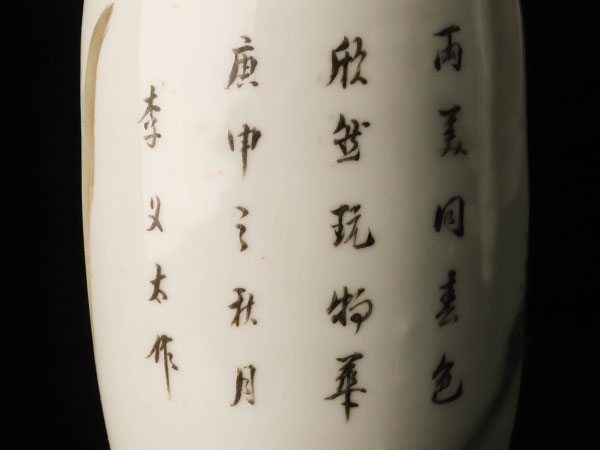 両美同春色
欣然玩物華
庚申之秋月
李义太作